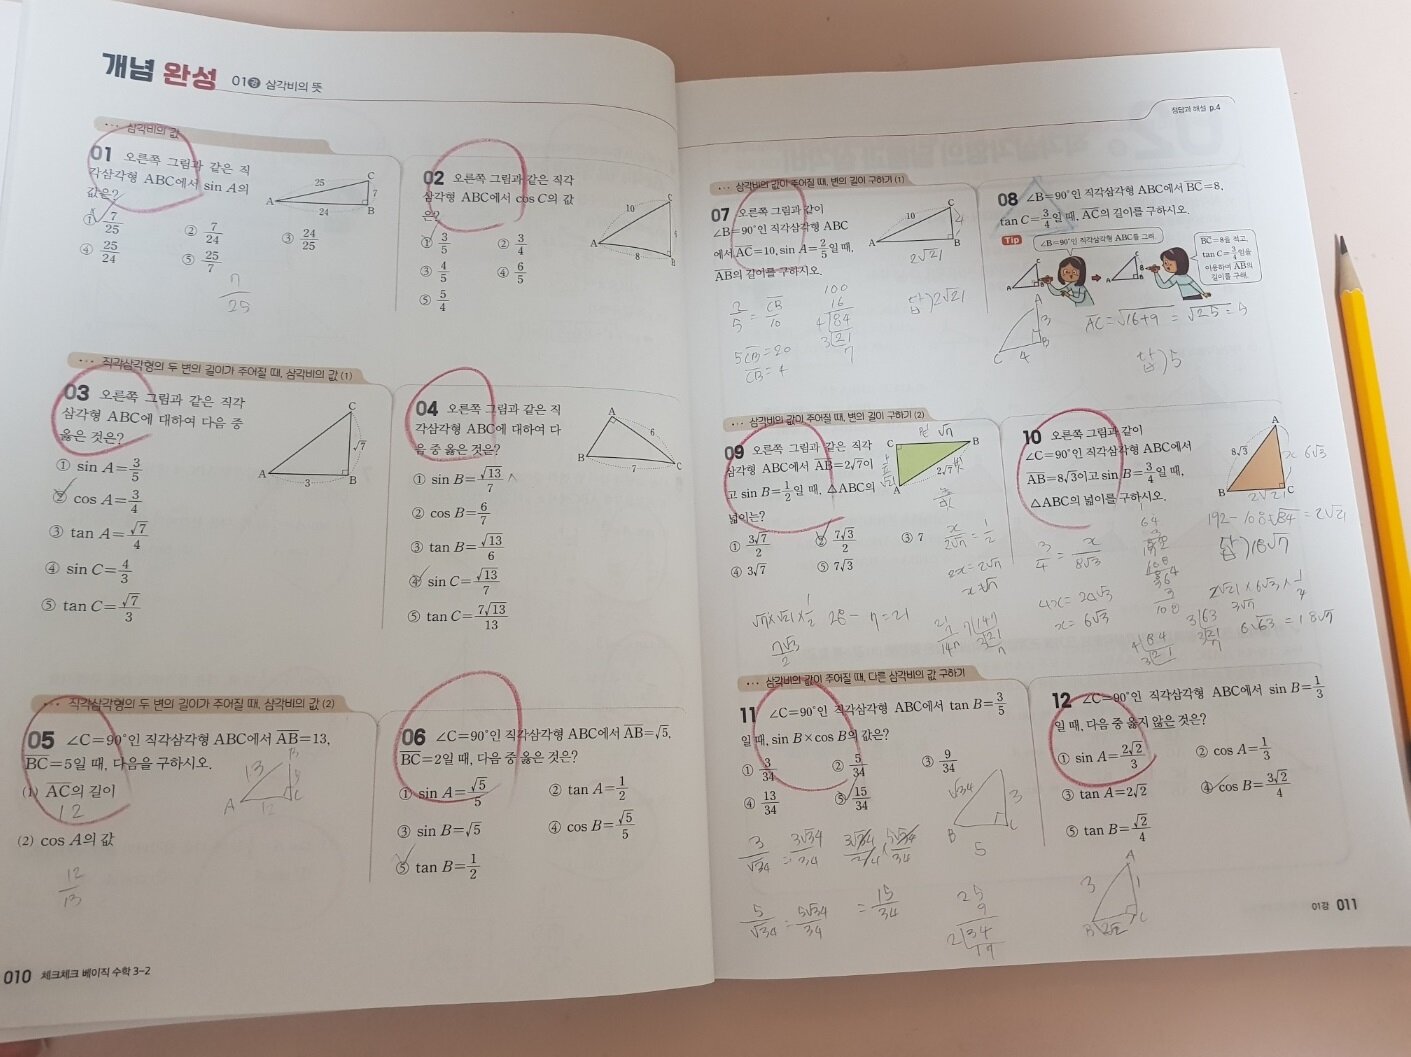 개념 완성 01강 삼각비의 뜻
삼각비의 값
01 오른쪽 그림과 같은 직
각삼각형 ABC에서 sin A의
값은?
① 7/25
② 7/24
③ 24/25
④ 25/24
⑤ 25/7
25
7
24
A
B
C
7/25
02 오른쪽 그림과 같은 직각
삼각형 ABC에서 cos C의 값
은?
① 3/5
② 3/4
③ 4/5
④ 6/5
⑤ 5/4
10
8
A
B
C
직각삼각형의 두 변의 길이가 주어질 때, 삼각비의 값 (1)
03 오른쪽 그림과 같은 직각
삼각형 ABC에 대하여 다음 중
옳은 것은?
① sin A=3/5
② cos A=3/4
③ tan A=√7/4
④ sin C=4/3
⑤ tan C=√7/3
C
√7
A
3
B
04 오른쪽 그림과 같은 직
각삼각형 ABC에 대하여 다
음 중 옳은 것은?
① sin B=√13/7
② cos B=6/7
③ tan B=√13/6
④ sin C=√13/7
⑤ tan C=7√13/13
A
6
B
7
C
직각삼각형의 두 변의 길이가 주어질 때, 삼각비의 값 (2)
05 ∠C=90°인 직각삼각형 ABC에서 AB=13,
BC=5일 때, 다음을 구하시오.
(1) AC의 길이
12
(2) cos A의 값
12/13
13
B
A
12
C
06 ∠C=90°인 직각삼각형 ABC에서 AB=√5,
BC=2일 때, 다음 중 옳은 것은?
① sin A=√5/5
② tan A=1/2
③ sin B=√5
④ cos B=√5/5
⑤ tan B=1/2
010 체크체크 베이직 수학 3-2
정답과 해설 p.4
삼각비의 값이 주어질 때, 변의 길이 구하기 (1)
07 오른쪽 그림과 같이
∠B=90°인 직각삼각형 ABC
에서 AC=10, sin A=2/5일 때,
AB의 길이를 구하시오.
10
C
4
A
B
2√21
2/5 = CB/10
5CB=20
CB=4
100
16
4 84
3 21
7
답) 2√21
08 ∠B=90°인 직각삼각형 ABC에서 BC=8,
tan C=3/4일 때, AC의 길이를 구하시오.
Tip
∠B=90°인 직각삼각형 ABC를 그려
BC=8을 적고,
tan C=3/4임을
이용하여 AB의
길이를 구해.
A
3
B
C
4
AC=√16+9 = √25 = 5
답) 5
삼각비의 값이 주어질 때, 변의 길이 구하기 (2)
09 오른쪽 그림과 같은 직각
삼각형 ABC에서 AB=2√7이
고 sin B=1/2일 때, △ABC의
넓이는?
① 3√7/2
② 7√3/2
③ 7
④ 3√7
⑤ 7√3
C
B
2√7
A
√21
x/2√7 = 1/2
2x=2√7
x=√7
√7×√21×1/2
28-7=21
7√3/2
10 오른쪽 그림과 같이
∠C=90°인 직각삼각형 ABC에서
AB=8√3이고 sin B=3/4일 때,
△ABC의 넓이를 구하시오.
A
8√3
x 6√3
B
C
2√21
3/4 = x/8√3
4x=24√3
x=6√3
64
3
192
192-108=√84=2√21
답) 18√7
6√63=18√7
삼각비의 값이 주어질 때, 다른 삼각비의 값 구하기
11 ∠C=90°인 직각삼각형 ABC에서 tan B=3/5
일 때, sin B×cos B의 값은?
① 3/34
② 5/34
③ 9/34
④ 13/34
⑤ 15/34
√34
3
B
C
5
3/√34 = 3√34/34
3√34/34 × 5√34/34
5/√34 = 5√34/34
= 15/34
25
9
2 34
17
12 ∠C=90°인 직각삼각형 ABC에서 sin B=1/3
일 때, 다음 중 옳지 않은 것은?
① sin A=2√2/3
② cos A=1/3
③ tan A=2√2
④ cos B=3√2/4
⑤ tan B=√2/4
A
3
1
B
2√2
C
01강 011